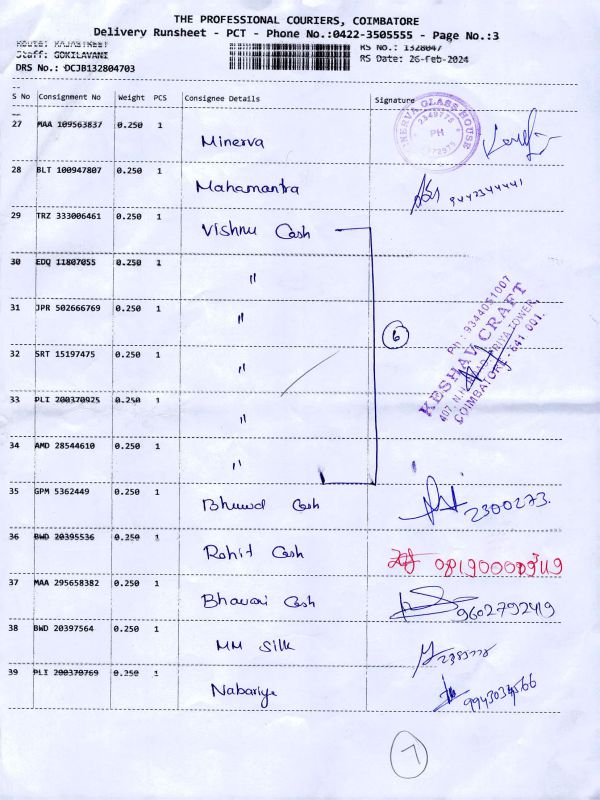 THE PROFESSIONAL COURIERS, COIMBATORE
Delivery Runsheet - PCT - Phone No.:0422-3505555 - Page No.:3
Route: RAJASTREET
Staff: GOKILAVANI
DRS No.: DCJB132804703
RS No.: 1328047
RS Date: 26-Feb-2024
S No Consignment No Weight PCS Consignee Details Signature
27 MAA 109563837 0.250 1 Minerva
MINERVA GLASS HOUSE
2349775
PH
28 BLT 100947807 0.250 1 Mahamantra 9442344441
29 TRZ 333006461 0.250 1 Vishnu Cash
30 EDQ 11807055 0.250 1 "
31 JPR 502666769 0.250 1 "
32 SRT 15197475 0.250 1 "
33 PLI 200370925 0.250 1 "
34 AMD 28544610 0.250 1 "
6
Ph : 9344051007
KESHAV CRAFT
COIMBATORE - 641 001.
35 GPM 5362449 0.250 1 Cash 2300273.
36 BWD 20395536 0.250 1 Rohit Cash
37 MAA 295658382 0.250 1 Bhavani Cash 9602792419
38 BWD 20397564 0.250 1 MM Silk
39 PLI 200370769 0.250 1 Nabariye
7